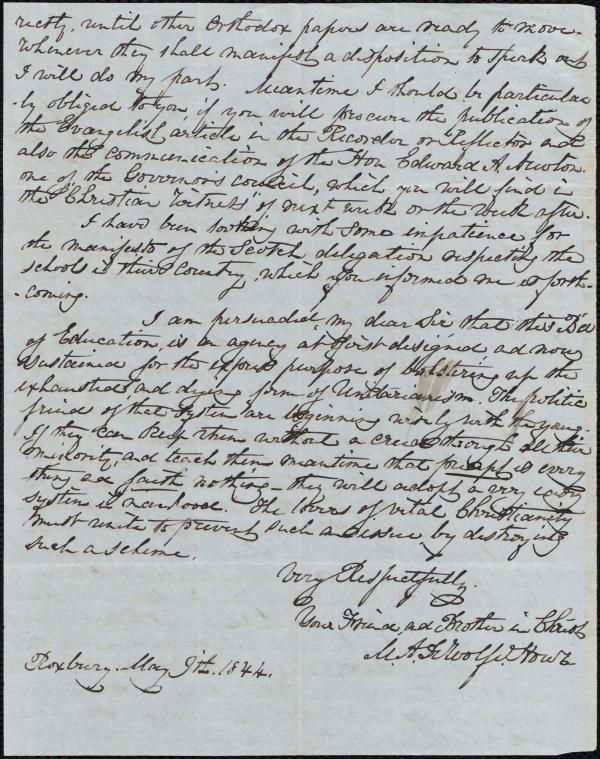 rectly, until other Orthodox papers are ready to move.
Whenever they shall manifest a disposition to speak out
I will do my part. Meantime I should be particular
-ly obliged to you, if you will procure the publication of
the Evangelist article in the Recorder or Reflector and
also the communication of the Hon Edward A. Newton.
one of the Governor's council, which you will find in
the "Christian Witness" of next week or the week after.
I have been looking with some impatience for
the manifesto of the Scotch delegation respecting the
schools in this country, which you informed me is forth-
-coming.
I am persuaded, my dear Sir that this B'd
of Education, is an agency at first designed, ad now
sustained for the express purpose of bolstering up the
exhausted, ad dying form of Unitarianism. The politic
friends of that system are beginning wisely with the young.
If they can keep them without a creed through all their
minority, and teach them meantime that is every
thing ad faith nothing - they will adopt a very easy
system in manhood. The lovers of vital Christianity
must unite to prevent such an issue by destroying
such a scheme.
Very Respectfully.
Your Friend, ad Brother in Christ
M. A. DeWolfe Howe
Roxbury. May 9th. 1844.